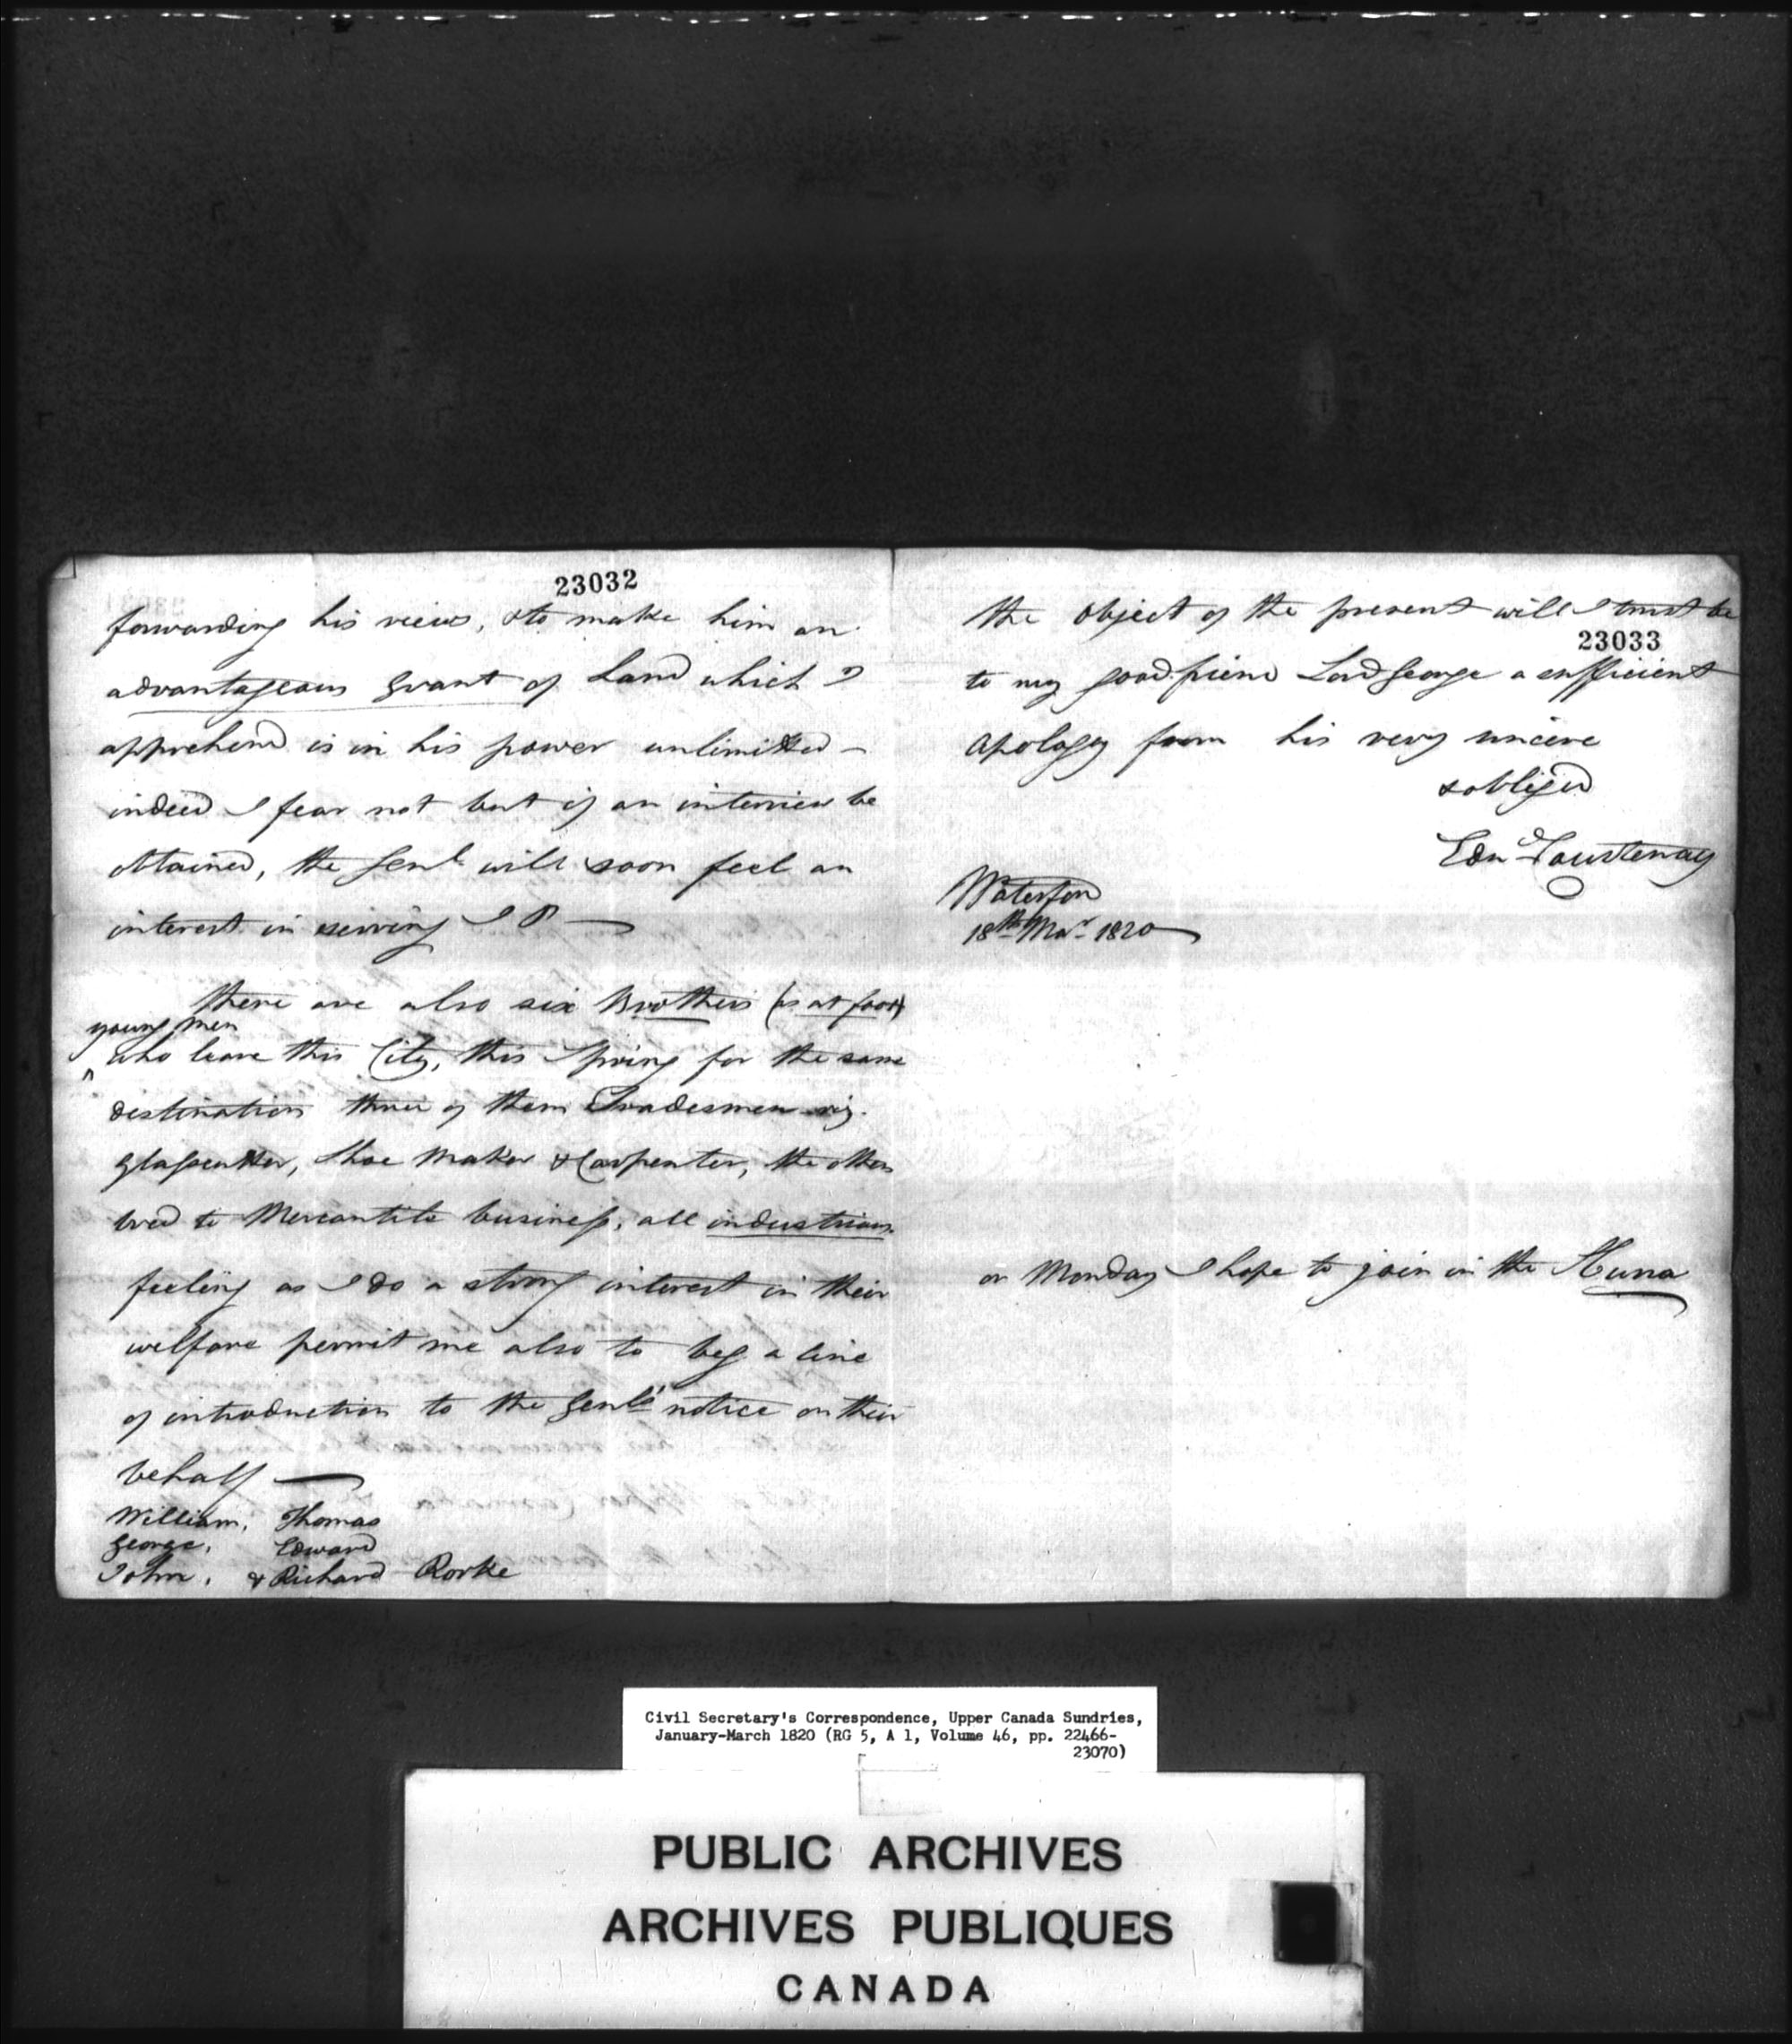 23032
forwarding his views, & to make him an
advantageous grant of Land which I
apprehend is in his power unlimitted –
indeed I fear not but if an interview be
obtained, the Genl. will soon feel an
interest in serving J P —
there are also six Brothers (as at foot)
young men
who leave this City, this Spring for the same
destination three of them Tradesmen viz.
Glasscutter, Shoe Maker & Carpenter, the others
bred to Mercantile business, all industrious
feeling as I do a strong interest in their
welfare permit me also to beg a line
of introduction to the Genls' notice on their
behalf —
William, Thomas
George, Edward
John, & Richard Rorke
the object of the present will I trust be
23033
to my good friend Lord George a sufficient
apology from his very sincere
& obliged
Edwd Courtenay
Waterford
18th Mar. 1820
on Monday I hope to join in the
Civil Secretary's Correspondence, Upper Canada Sundries,
January-March 1820 (RG 5, A 1, Volume 46, pp. 22466-
23070)
PUBLIC ARCHIVES
ARCHIVES PUBLIQUES
CANADA